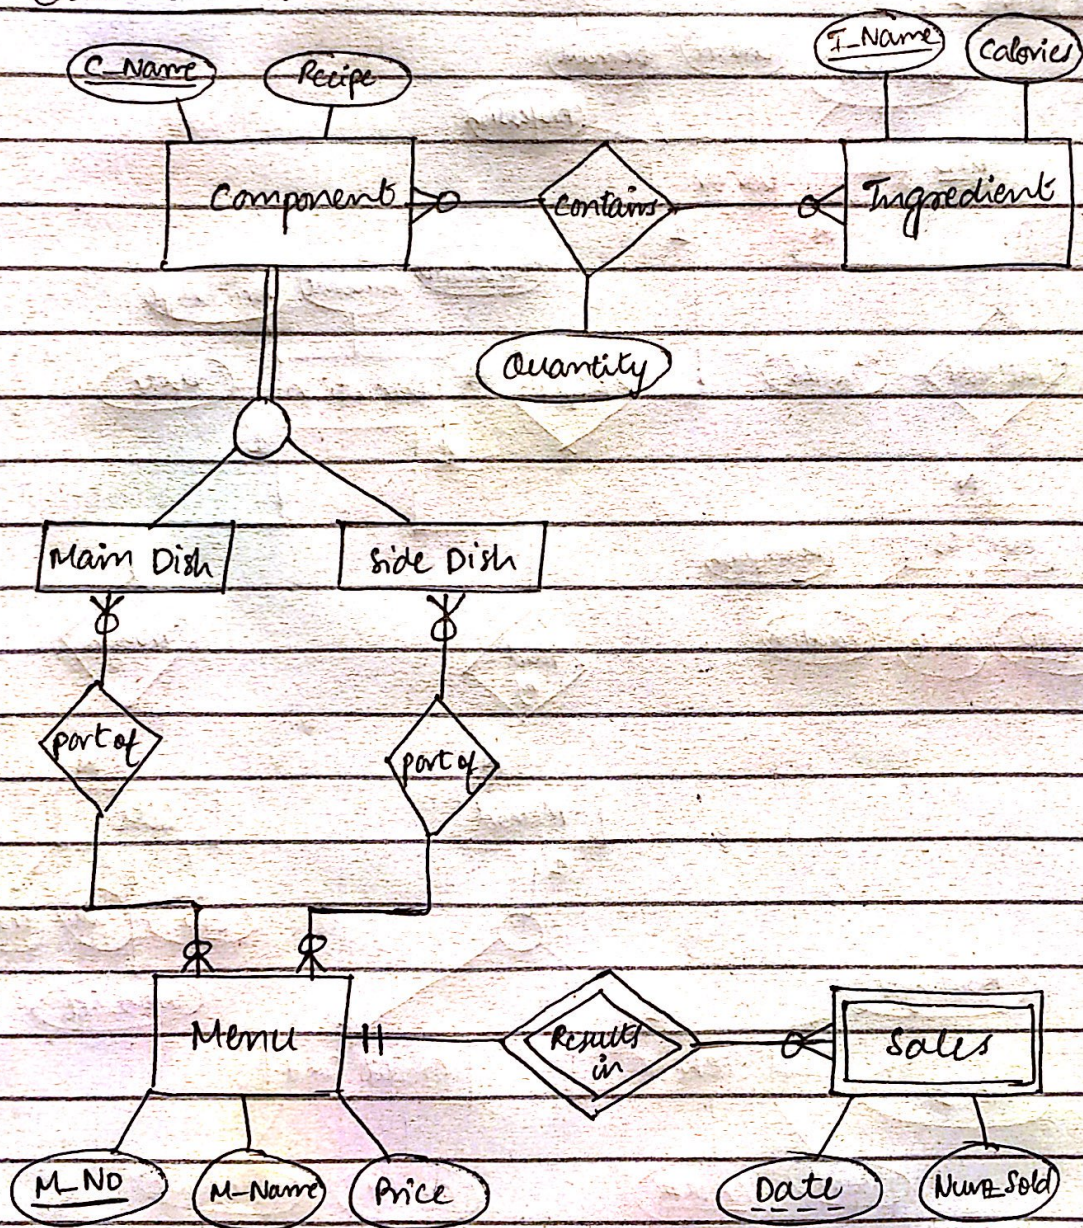 C_Name
Recipe
I_Name
Calories
Component
Contains
Ingredient
Quantity
Main Dish
Side Dish
part of
part of
Menu
Results
in
Sales
M_NO
M_Name
Price
Date
Num_Sold